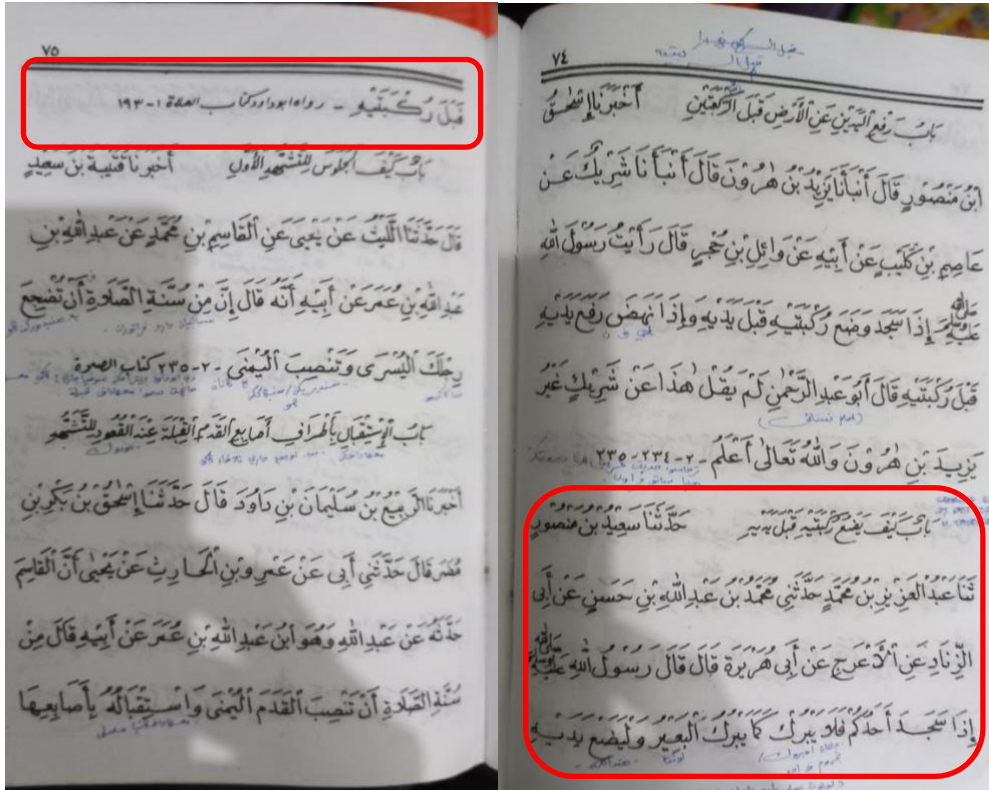 ٧٤
بَابُ رَفْعِ الْيَدَيْنِ عَنِ الْأَرْضِ قَبْلَ الرُّكْبَتَيْنِ أَخْبَرَنَا إِسْحٰقُ
ابْنُ مَنْصُورٍ قَالَ أَنْبَأَنَا يَزِيْدُ بْنُ هٰرُوْنَ قَالَ أَنْبَأَنَا شَرِيْكٌ عَنْ
عَاصِمِ بْنِ كُلَيْبٍ عَنْ أَبِيْهِ عَنْ وَائِلِ بْنِ حُجْرٍ قَالَ رَأَيْتُ رَسُوْلَ اللهِ
ﷺ إِذَا سَجَدَ وَضَعَ رُكْبَتَيْهِ قَبْلَ يَدَيْهِ وَإِذَا نَهَضَ رَفَعَ يَدَيْهِ
قَبْلَ رُكْبَتَيْهِ قَالَ أَبُوْ عَبْدِ الرَّحْمٰنِ لَمْ يَقُلْ هٰذَا عَنْ شَرِيْكٍ غَيْرُ
(امام نسائي)
يَزِيْدَ بْنِ هٰرُوْنَ وَاللهُ تَعَالٰى أَعْلَمُ - ٢ - ٢٣٤ - ٢٣٥
بَابُ كَيْفَ يَضَعُ رُكْبَتَيْهِ قَبْلَ يَدَيْهِ حَدَّثَنَا سَعِيْدُ بْنُ مَنْصُوْرٍ
ثَنَا عَبْدُ الْعَزِيْزِ بْنُ مُحَمَّدٍ حَدَّثَنِيْ مُحَمَّدُ بْنُ عَبْدِ اللهِ بْنِ حَسَنٍ عَنْ أَبِى
الزِّنَادِ عَنِ الْأَعْرَجِ عَنْ أَبِى هُرَيْرَةَ قَالَ قَالَ رَسُوْلُ اللهِ ﷺ
إِذَا سَجَدَ أَحَدُكُمْ فَلَا يَبْرُكْ كَمَا يَبْرُكُ الْبَعِيْرُ وَلْيَضَعْ يَدَيْهِ
٧٥
قَبْلَ رُكْبَتَيْهِ - رواه ابو داود كتاب الصلاة ١-١٩٣
بَابُ كَيْفَ الْجُلُوْسُ لِلتَّشَهُّدِ الْأَوَّلِ أَخْبَرَنَا قُتَيْبَةُ بْنُ سَعِيْدٍ
قَالَ حَدَّثَنَا اللَّيْثُ عَنْ يَحْيٰى عَنِ الْقَاسِمِ بْنِ مُحَمَّدٍ عَنْ عَبْدِ اللهِ بْنِ
عَبْدِ اللهِ بْنِ عُمَرَ عَنْ أَبِيْهِ أَنَّهُ قَالَ إِنَّ مِنْ سُنَّةِ الصَّلَاةِ أَنْ تُضْجِعَ
رِجْلَكَ الْيُسْرٰى وَتَنْصِبَ الْيُمْنٰى - ٢-٢٣٥ كتاب الصلاة
بَابُ الْإِسْتِقْبَالِ بِأَطْرَافِ أَصَابِعِ الْقَدَمِ الْقِبْلَةَ عِنْدَ الْقُعُوْدِ لِلتَّشَهُّدِ
أَخْبَرَنَا الرَّبِيْعُ بْنُ سُلَيْمَانَ بْنِ دَاوُدَ قَالَ حَدَّثَنَا إِسْحٰقُ بْنُ بَكْرِ بْنِ
مُضَرَ قَالَ حَدَّثَنِيْ أَبِى عَنْ عَمْرِو بْنِ الْحَارِثِ عَنْ يَحْيٰى أَنَّ الْقَاسِمَ
حَدَّثَهُ عَنْ عَبْدِ اللهِ وَهُوَ ابْنُ عَبْدِ اللهِ بْنِ عُمَرَ عَنْ أَبِيْهِ قَالَ مِنْ
سُنَّةِ الصَّلَاةِ أَنْ تَنْصِبَ الْقَدَمَ الْيُمْنٰى وَاسْتِقْبَالُهُ بِأَصَابِعِهَا